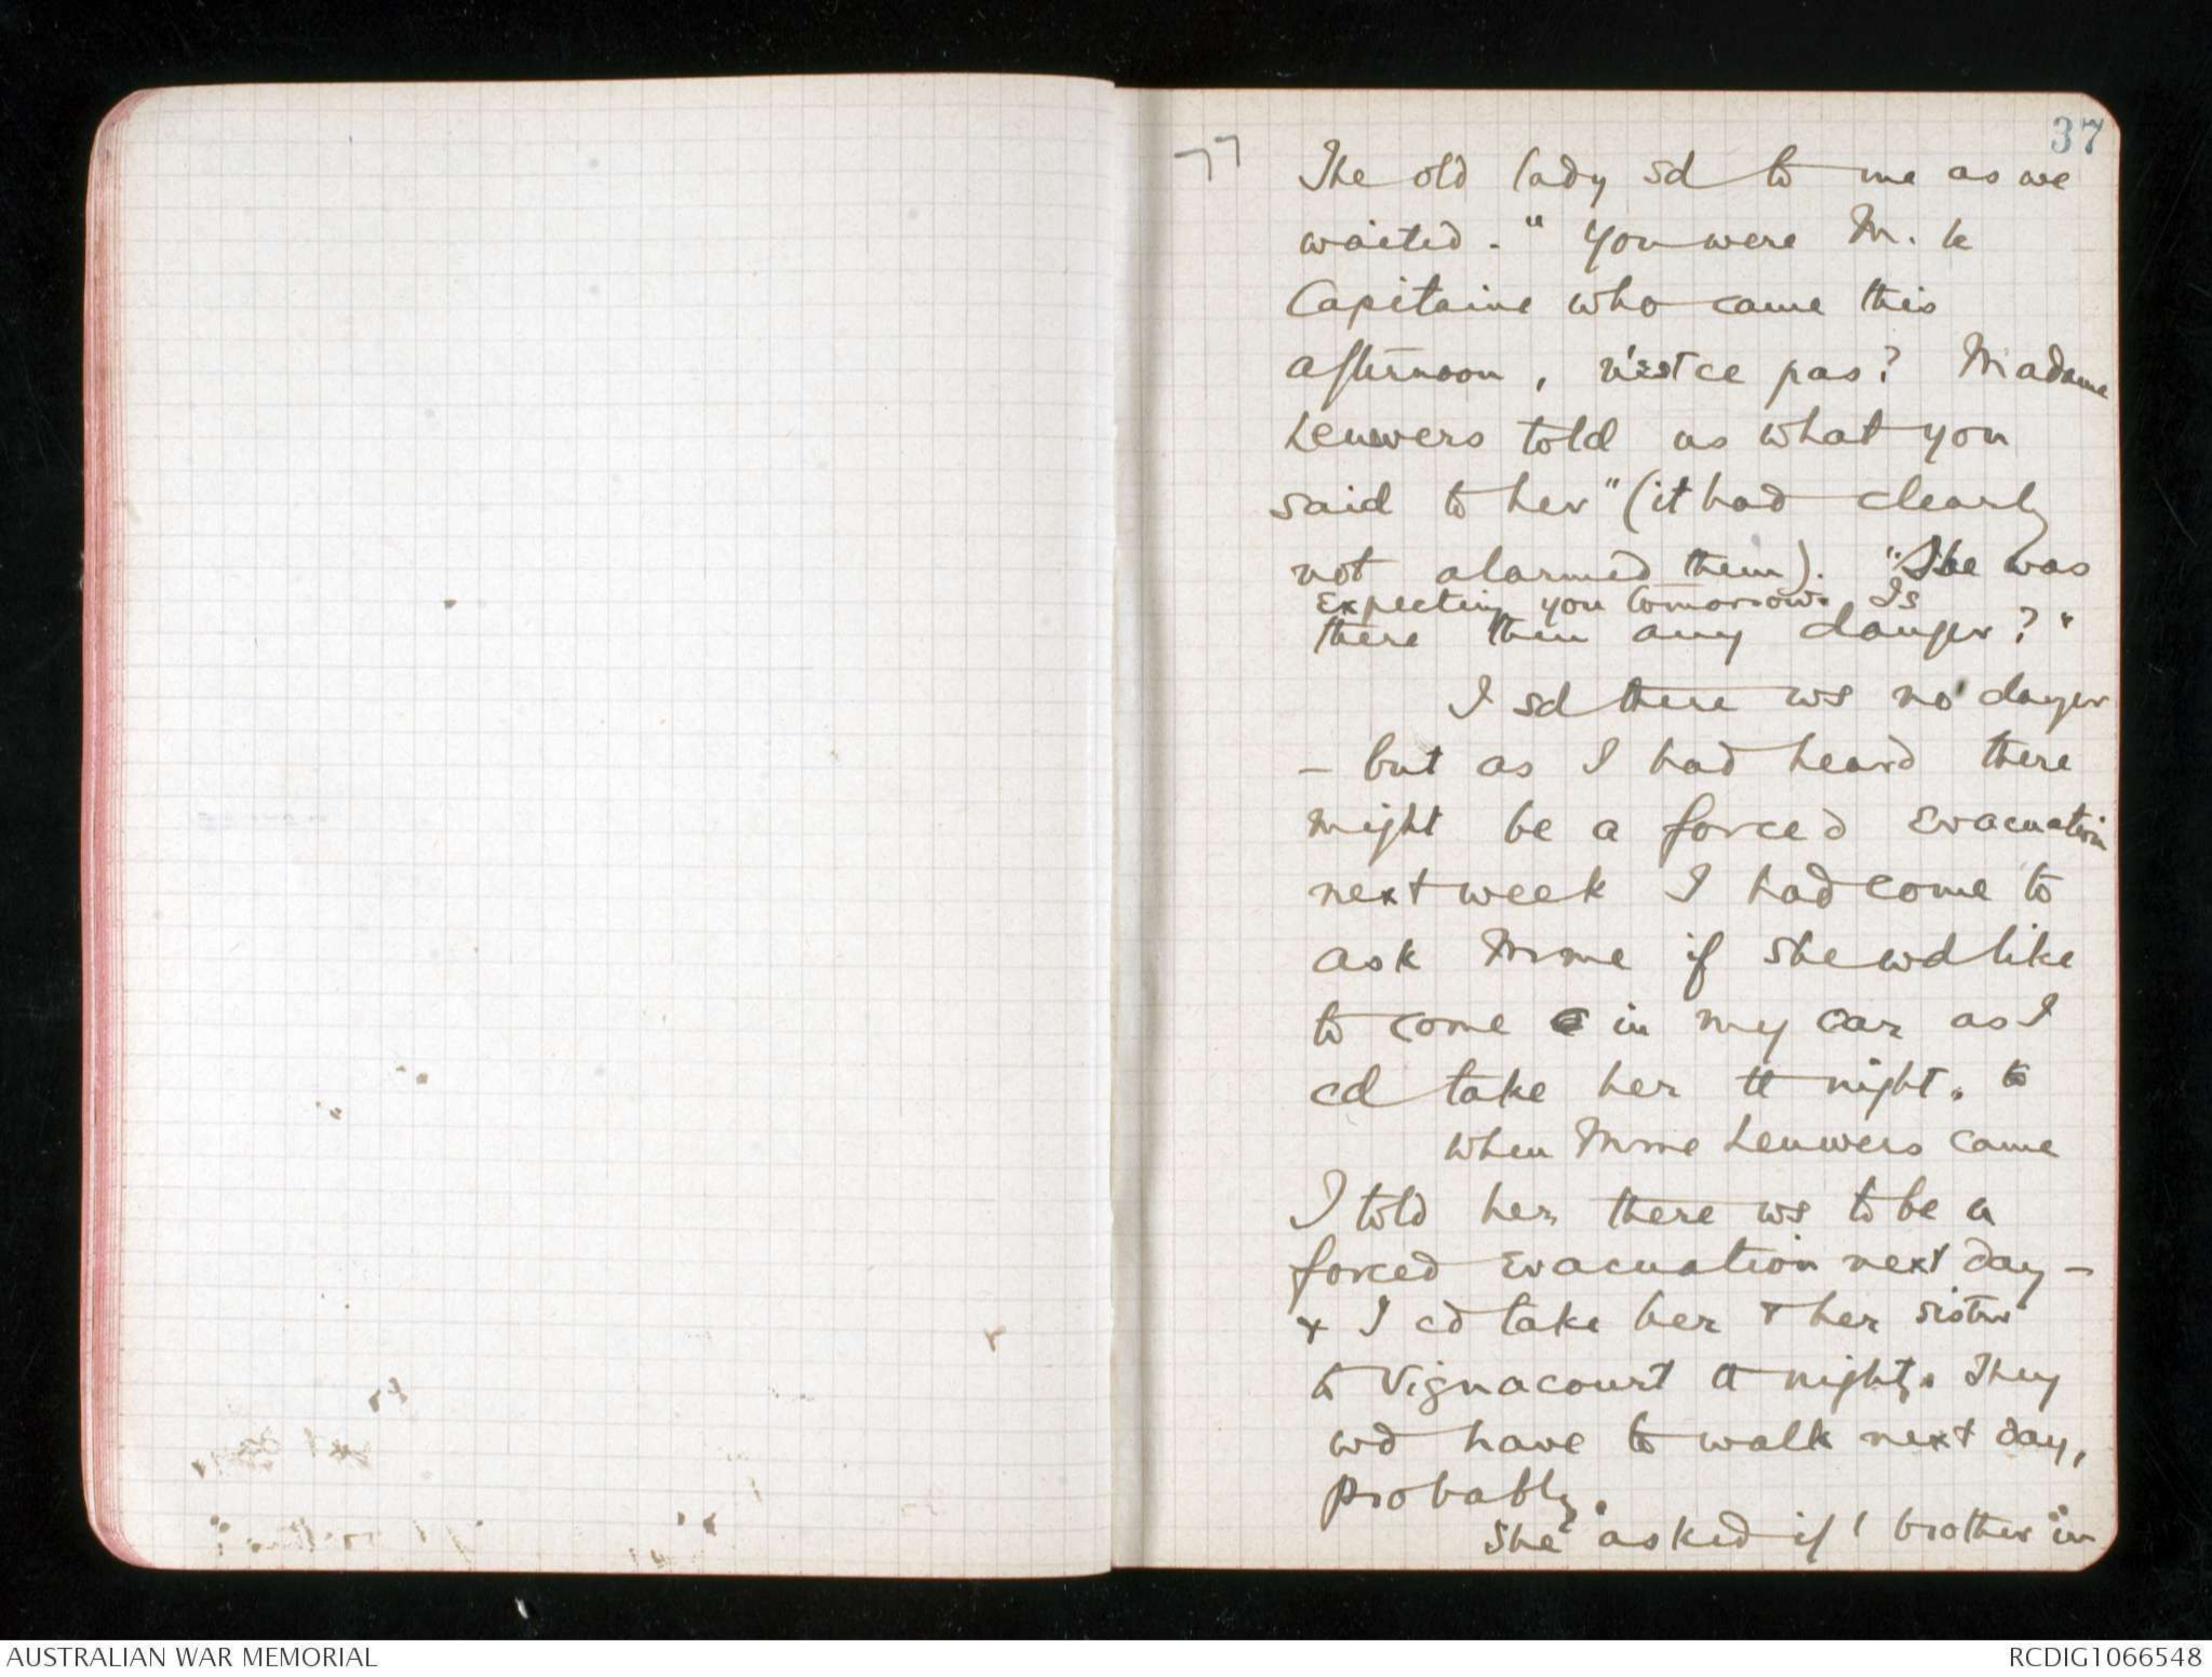 37
77
The old lady sd to me as we
waited. "You were M. le
Capitaine who came this
afternoon, n'est ce pas? Madame
Leuwers told us what you
said to her" (it had clearly
not alarmed them). "She was
expecting you tomorrow. Is
there then any danger?"
I sd there ws no danger
- but as I had heard there
might be a forced evacuation
next week I had come to
ask Mme if she wd like
to come in my car as I
cd take her tt night. to
When Mme Leuwers came
I told her there ws to be a
forced evacuation next day -
& I cd take her & her sister
to Vignacourt tt night. They
wd have to walk next day,
probably.
She asked if / brother in
AUSTRALIAN WAR MEMORIAL
RCDIG1066548